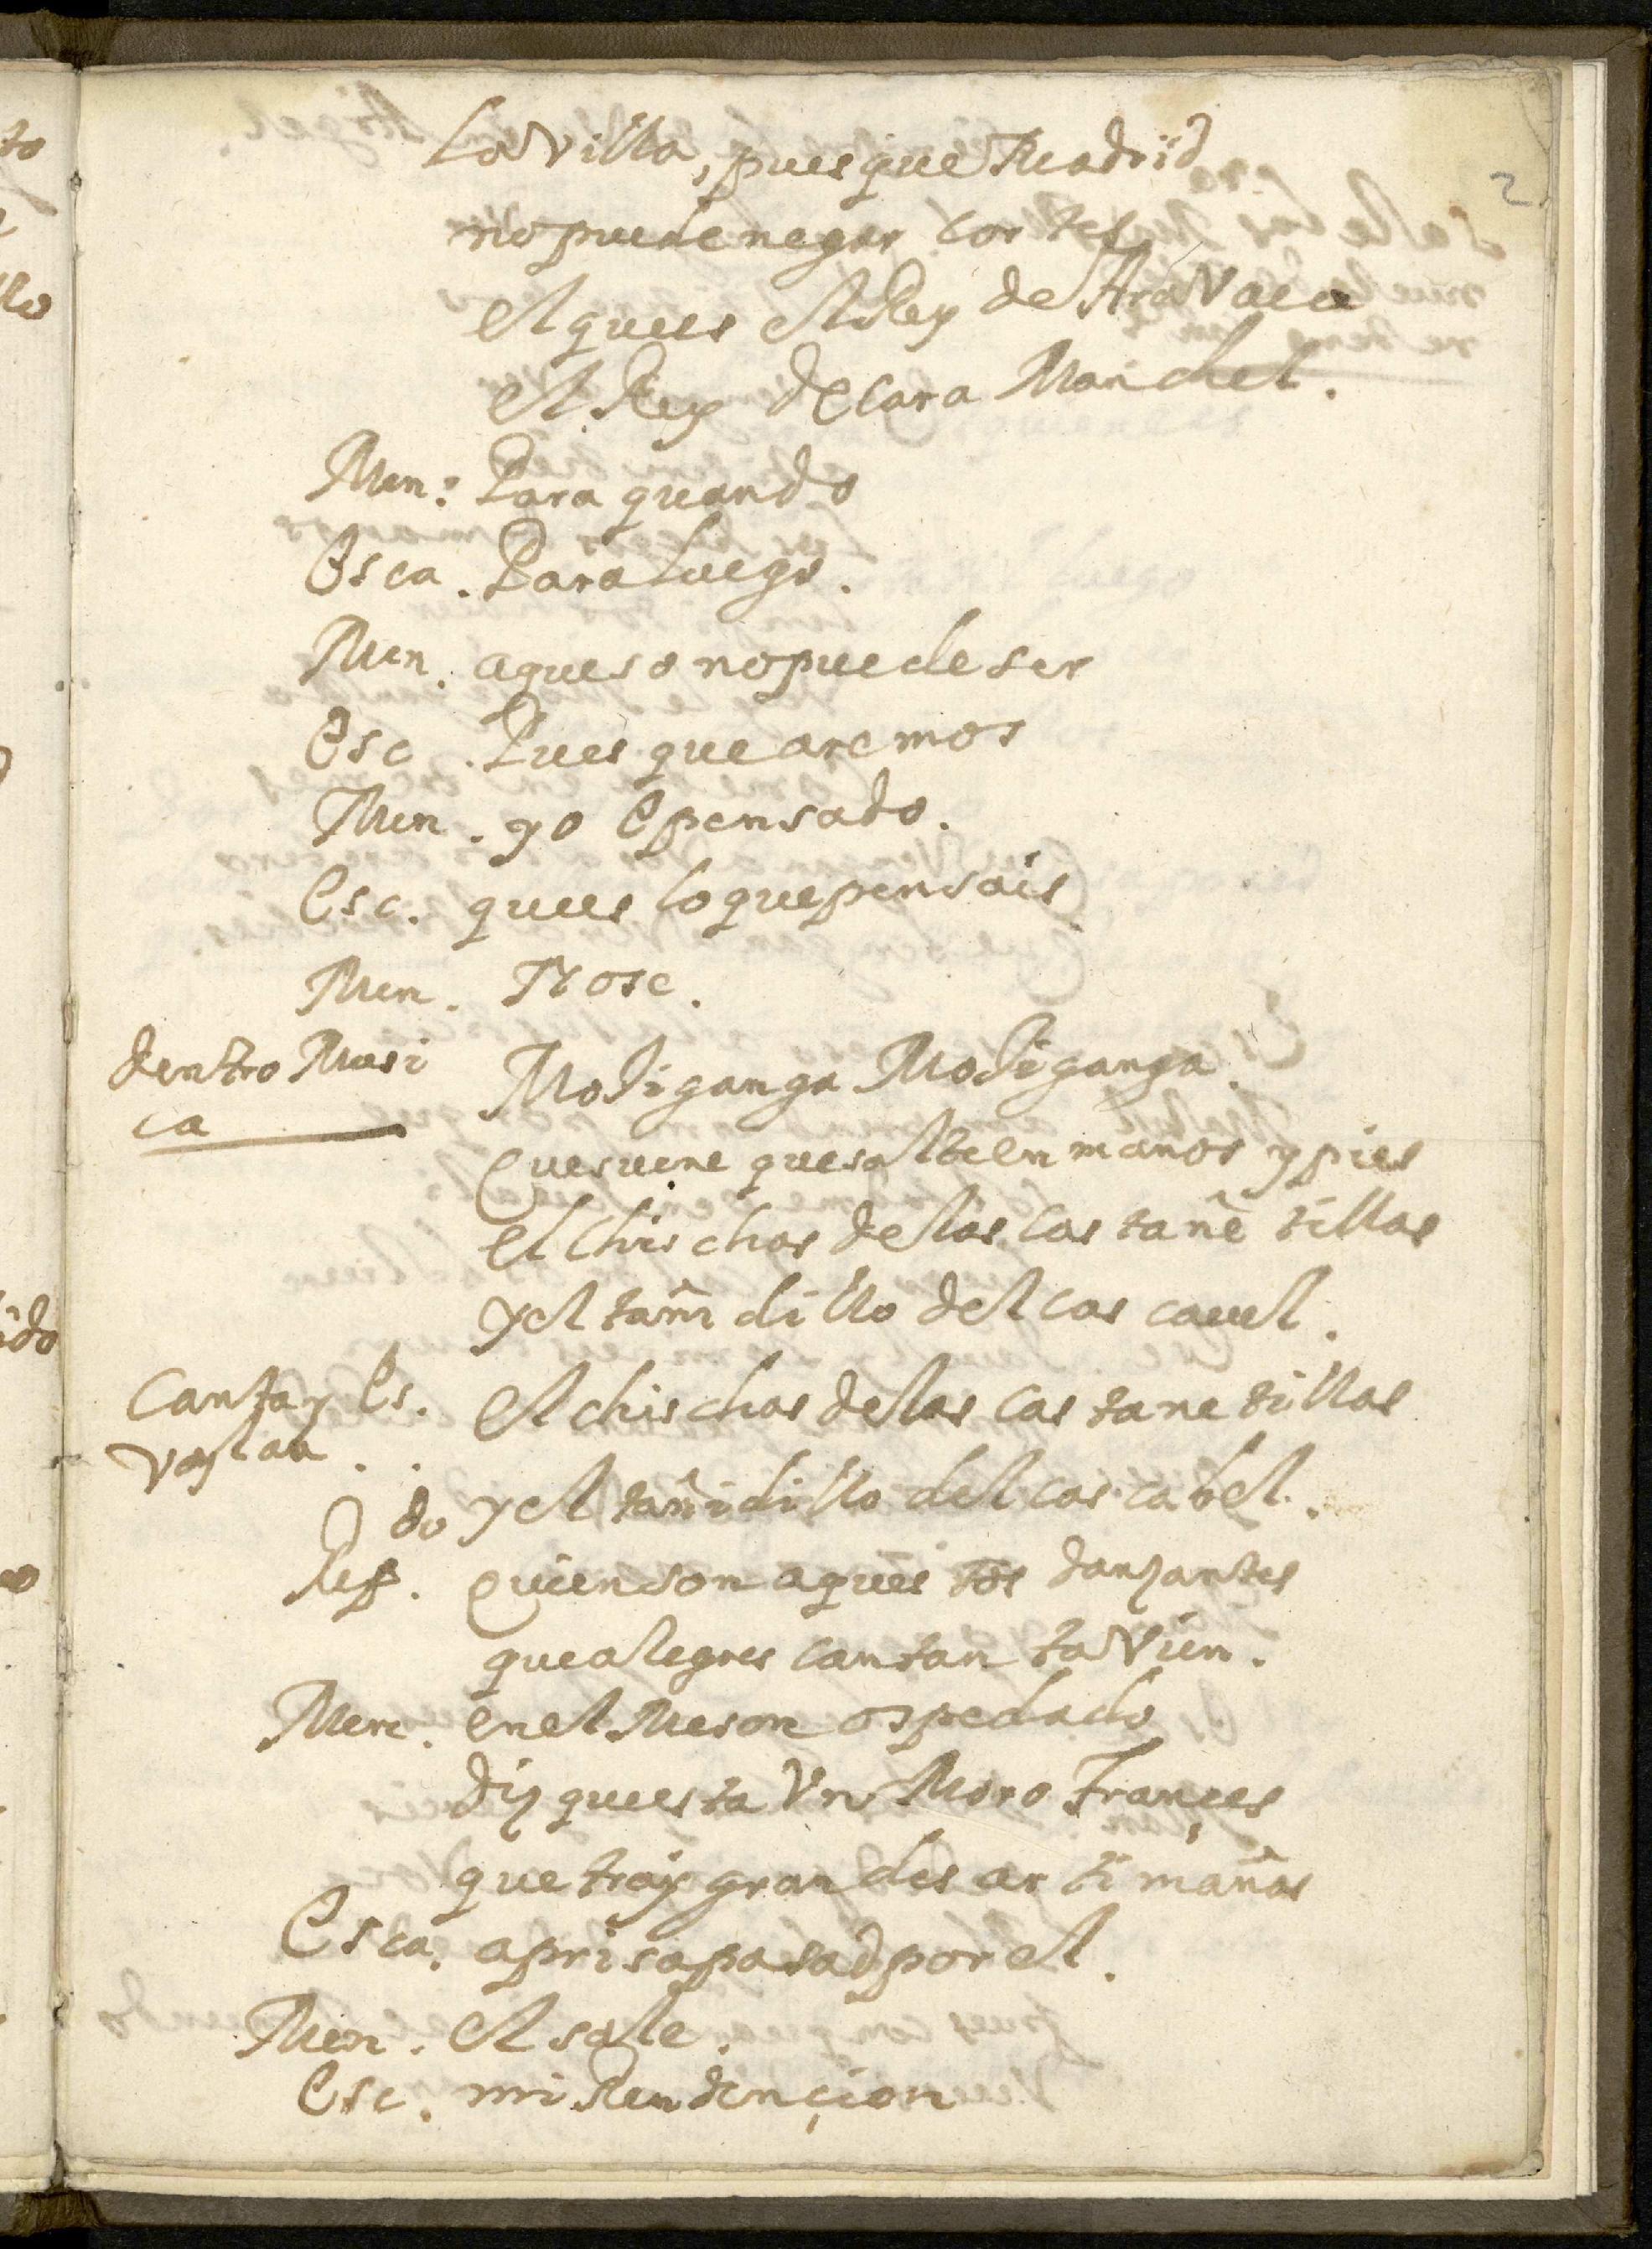 2
La villa, pues que Madrid
no puede negar cortes
el que es el Rey de AraVaca
el Rey de Cara Manchel.
Men: Para quando
Esca. Para luego.
Men. aqueso no puede ser
Esc. Pues que aremos
Men. yo e pensado.
Esc. que es lo que pensais
Men. No se.
dentro Musi
ca
Mojiganga Mojiganga.
Que suene que salte en manos y pies
el chis chas de las castañetillas
y el tañidillo del cascauel.
Canta y
vaylan
Es. el chis chas de las castanetillas
do y el tañidillo del cascabel.
Rep. Quien son aquestos danzantes
que alegres cantan ta Vien.
Men. en el Meson ospedado
diz que esta Vn Moro Françes
que tray grandes artimañas
Esca. aprisa pasad por el.
Men. el sale.
Esc. mi Rendençion